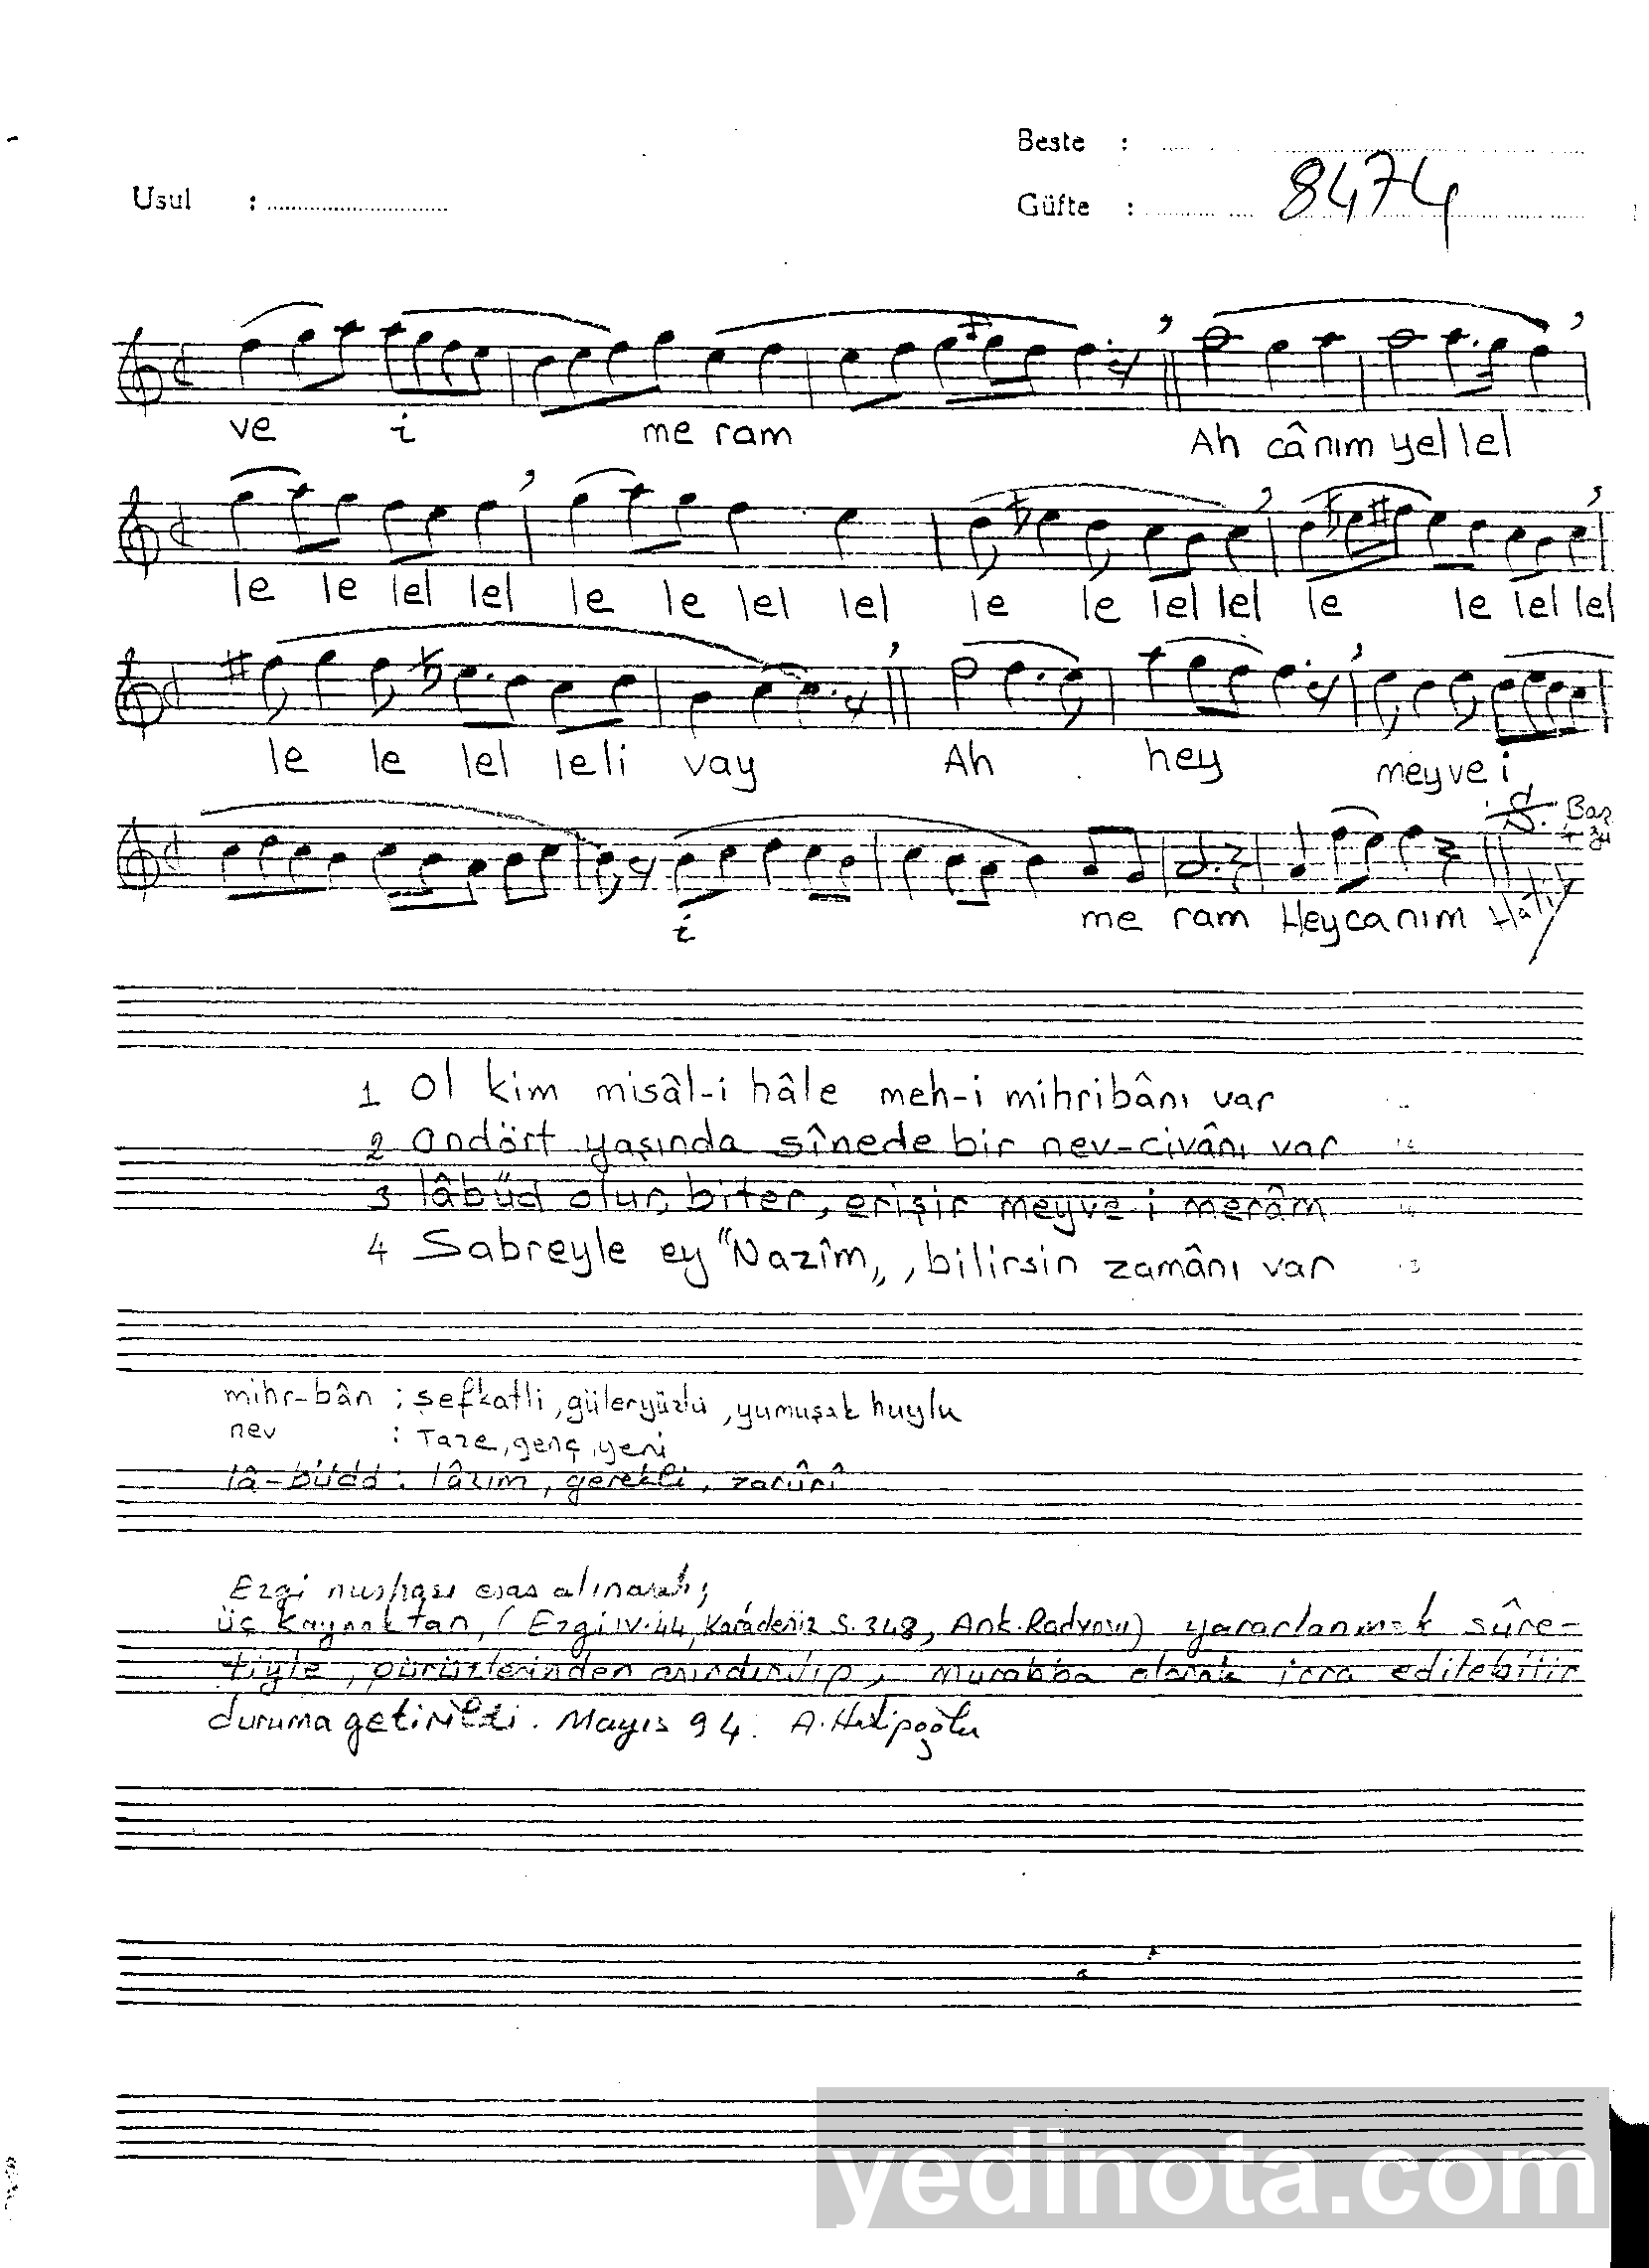 Beste :
Usul :
Güfte : 8474
ve i me ram Ah cânım yel lel
le le lel lel le le lel lel le le lel lel le le lel lel
le le lel leli vay Ah hey meyve i
i me ram Hey canım
1 Ol kim misâl-i hâle meh-i mihribânı var
2 Ondört yaşında sînede bir nev-civânı var
3 lâbüd olur, biter, erişir meyve-i merâm
4 Sabreyle ey "Nazîm", bilirsin zamânı var
mihr-bân : şefkatli, güleryüzlü, yumuşak huylu
nev : Taze, genç, yeni
lâ-büdd : lâzım, gerekli, zarûrî
Ezgi nushası esas alınarak;
üç kaynaktan, (Ezgi IV.44, Karadeniz S.348, Ank.Radyosu) yararlanmak sûre-
tiyle, pürüzlerinden arındırılıp, murabba olarak icra edilebilir
duruma getirildi. Mayıs 94. A.Hatipoğlu
yedinota.com